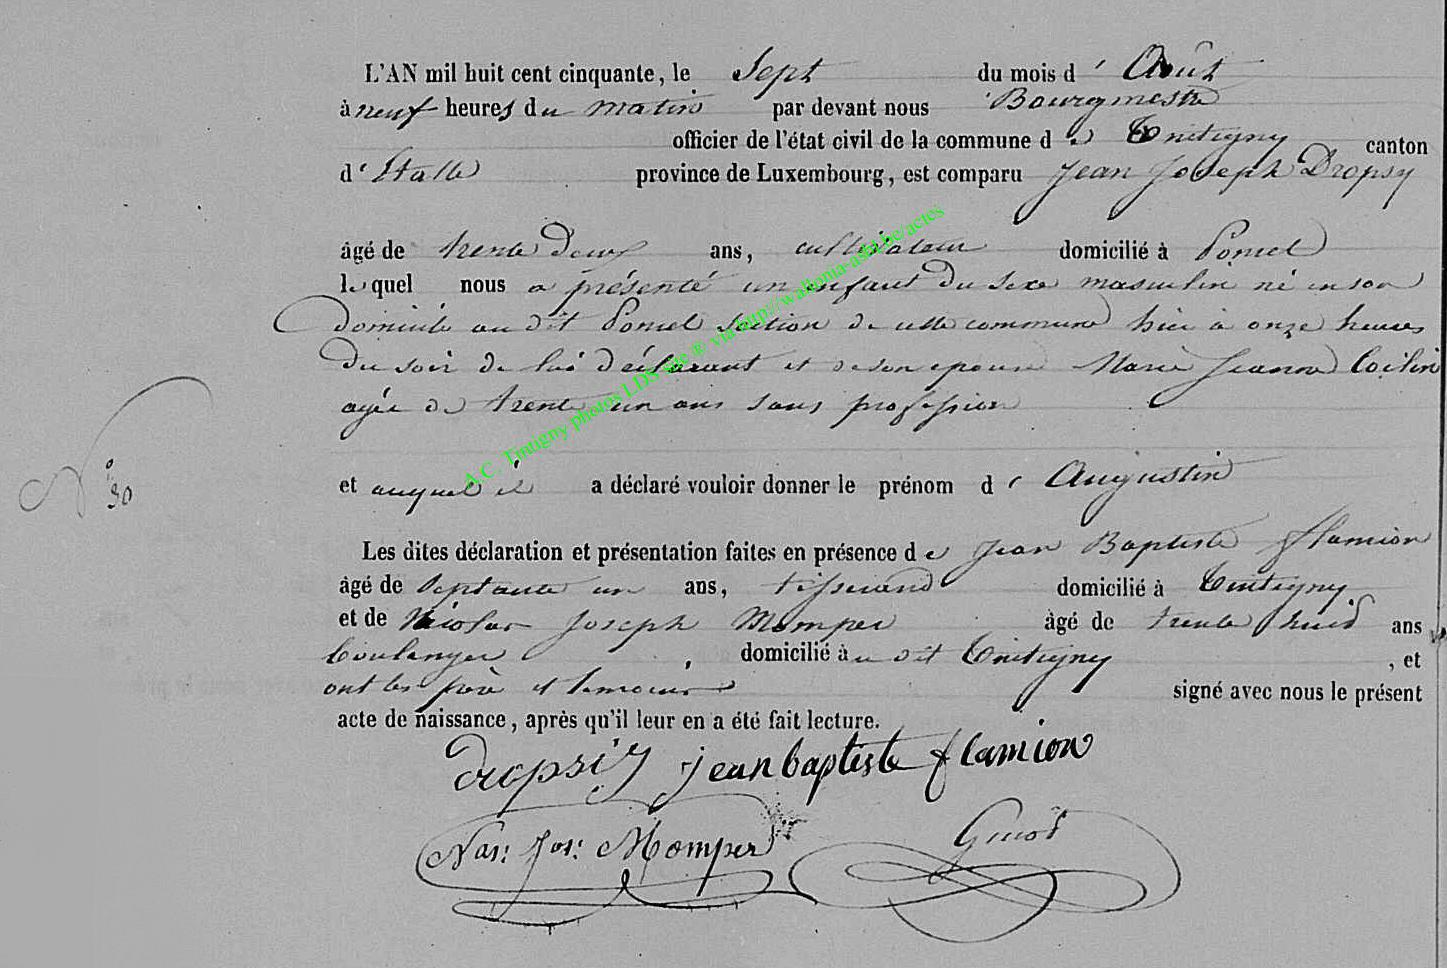 L'AN mil huit cent cinquante, le Sept du mois d' Août
à neuf heures du matin par devant nous Bourgmestre
officier de l'état civil de la commune de Tintigny canton
d'Etalle province de Luxembourg, est comparu Jean Joseph Dropsy
âgé de trente deux ans, cultivateur domicilié à Poncel
lequel nous a présenté un enfant du sexe masculin né en son
domicile au dit Poncel section de cette commune hier à onze heures
du soir de lui déclarant et de son épouse Marie Jeanne
agée de trente un ans sans profession
N° 30
et auquel il a déclaré vouloir donner le prénom d' Augustin
Les dites déclaration et présentation faites en présence de Jean Baptiste flamion
âgé de septante un ans, tisserand domicilié à Tintigny
et de Nicolas Joseph Momper âgé de trente huit ans
boulanger domicilié à u dit Tintigny , et
ont les père et temoins signé avec nous le présent
acte de naissance, après qu'il leur en a été fait lecture.
dropsiy jean baptiste flamion
Nas: Jos: Momper
A.C. Tintigny photos LDS site ® via http//wallonia-asbl.be/actes